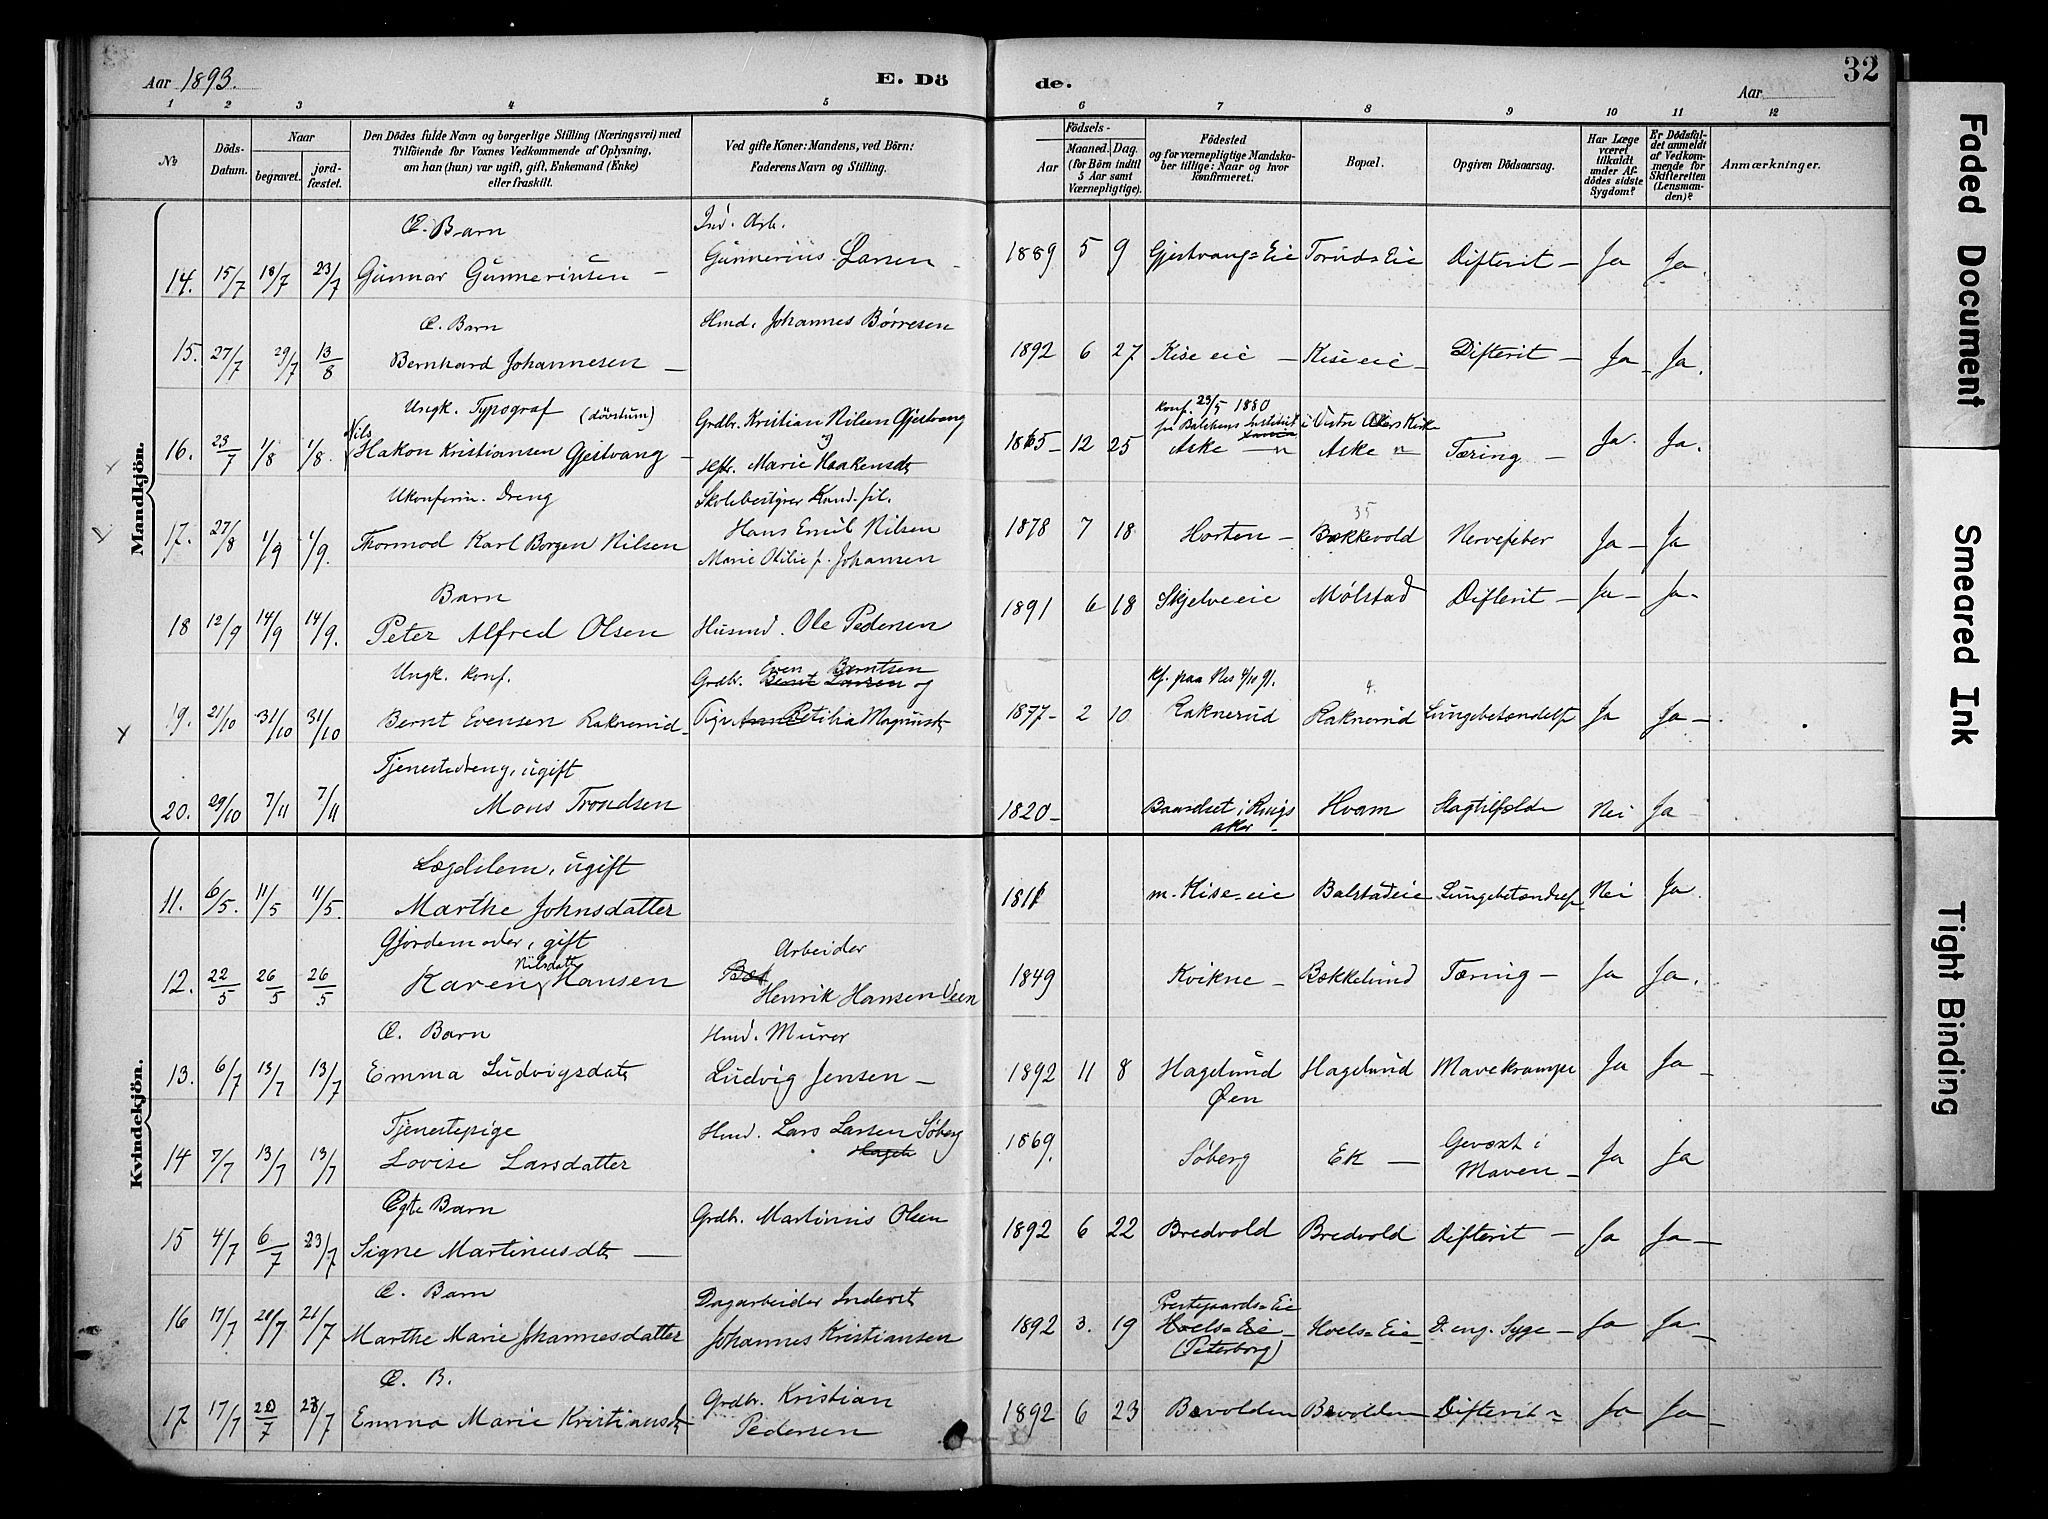 Aar 1893.
E. Dö
de.
Aar
32
1 2 3 4 5 6 7 8 9 10 11 12
No
Döds-Datum.
Naar
begravet.
jord-fæstet.
Den Dödes fulde Navn og borgerlige Stilling (Næringsvei) med
Tilföiende for Voxnes Vedkommende af Oplysning,
om han (hun) var ugift, gift, Enkemand (Enke)
eller fraskilt.
Ved gifte Koner: Mandens, ved Börn:
Faderens Navn og Stilling.
Födsels-
Aar
Maaned. Dag.
(for Börn indtil
5 Aar samt
Værnepligtige).
Födested
og for værnepligtige Mandska-
ber tillige: Naar og hvor
konfirmeret.
Bopæl.
Opgiven Dödsaarsag.
Har Læge
været
tilkaldt
under Af-
dödes sidste
Sygdom?
Er Dödsfal-
det anmeldt
af Vedkom-
mende for
Skifteretten
(Lensman-
den)?
Anmærkninger.
Mandkjön.
Æ. Barn Ind. Arb.
14. 15/7 18/7 23/7 Gunnar Gunneriusen – Gunnerius Larsen – 1889 5 9 Gjestvang=Eie Toruds Eie Difterit – Ja Ja.
Æ. Barn Hmd. Johannes Börresen
15. 27/7 29/7 13/8 Bernhard Johannesen – 1892 6 27 Kise eie – Kise eie – Difterit – Ja – Ja.
Ungk. Typograf (dövstum) Grdbr. Kristian Nilsen Gjestvang konf. 23/5 1880
Nils og fra Balchens Institut i Vestre Akers Kirke
16. 23/7 1/8 1/8. Hakon Kristiansen Gjestvang – Marie Haakensdt 1865 – 12 25 Aske – Aske Tæring – Ja. Ja.
Ukonferm. Dreng Skolebestyrer Kand. fil.
17. 27/8 1/9 1/9. Thormod Karl Borgen Nilsen Hans Emil Nilsen 1878 7 18 Horten – 35 Bækkevold Nervefeber Ja – Ja
Marie Otilie f. Johansen
Barn
18 12/9 14/9 14/9. Peter Alfred Olsen Husmd. Ole Pedersen 1891 6 18 Skjelve eie Mölstad Difterit – Ja – Ja –
Ungk. konf. Grdbr. Even Berntsen Bernt Larsen og Kf. paa Nes 4/10 91.
19. 21/10 31/10 31/10 Bernt Evensen Raknerud – Petilia Magnusdt 1877 – 2 10 Raknerud 4. Raknerud Lungebetændelse Ja Ja –
Tjenestedreng, ugift
20. 29/10 7/11 7/11 Mons Trondsen 1820 – i Rings aker – Hvam Slagtilfælde Nei Ja
Kvindekjön.
Lægdslem, ugift
11. 6/5. 11/5 11/5. Marthe Johnsdatter 1811 m. Kise=eie Balstadeie Lungebetændelse Nei Ja.
Gjordemoder, gift Arbeider
Nilsdatt
12. 22/5 26/5 26/5 Karen Hansen Henrik Hansen Veen 1849 Kvikne – Bækkelund Tæring – Ja Ja.
Æ. Barn Hmd. Murer
13. 6/7 13/7 13/7 Emma Ludvigsdatt Ludvig Jensen – 1892 11 8 Hagelund Öen Hagelund Mavekrampe Ja Ja –
Tjenestepige Hmd. Lars Larsen Söberg
14 7/7 13/7 13/7 Lovise Larsdatter 1869. Söberg Ek – Gevæxt i Maven – Ja Ja
Ægte Barn Grdbr. Martinius Olsen
15 4/7 6/7 23/7 Signe Martinusdtr – 1892 6 22 Bredvold Bredvold Difterit – Ja Ja –
Æ. Barn Dagarbeider Inderst Prestegaards=Eie
16 17/7 20/7 21/7 Marthe Marie Johannesdatter Johannes Kristiansen 1892 3. 19 Hoels=Eie – (Peterborg) Hoels=Eie – D. eng. Syge – Ja Ja –
Æ. B. Grdbr. Kristian
17 17/7 20/7 23/7 Emma Marie Kristiansdt Pedersen 1892 6 23 Bævolden Bævolden Difterit Ja Ja –
Faded Document
Smeared Ink
Tight Binding